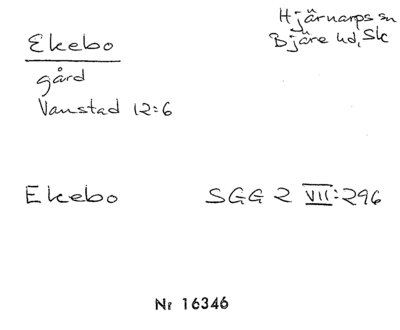 Hjärnarps sn
Bjäre hd, Sk
Ekebo
gård
Vanstad 12:6
Ekebo SGG 2 VII:296
Nr 16346